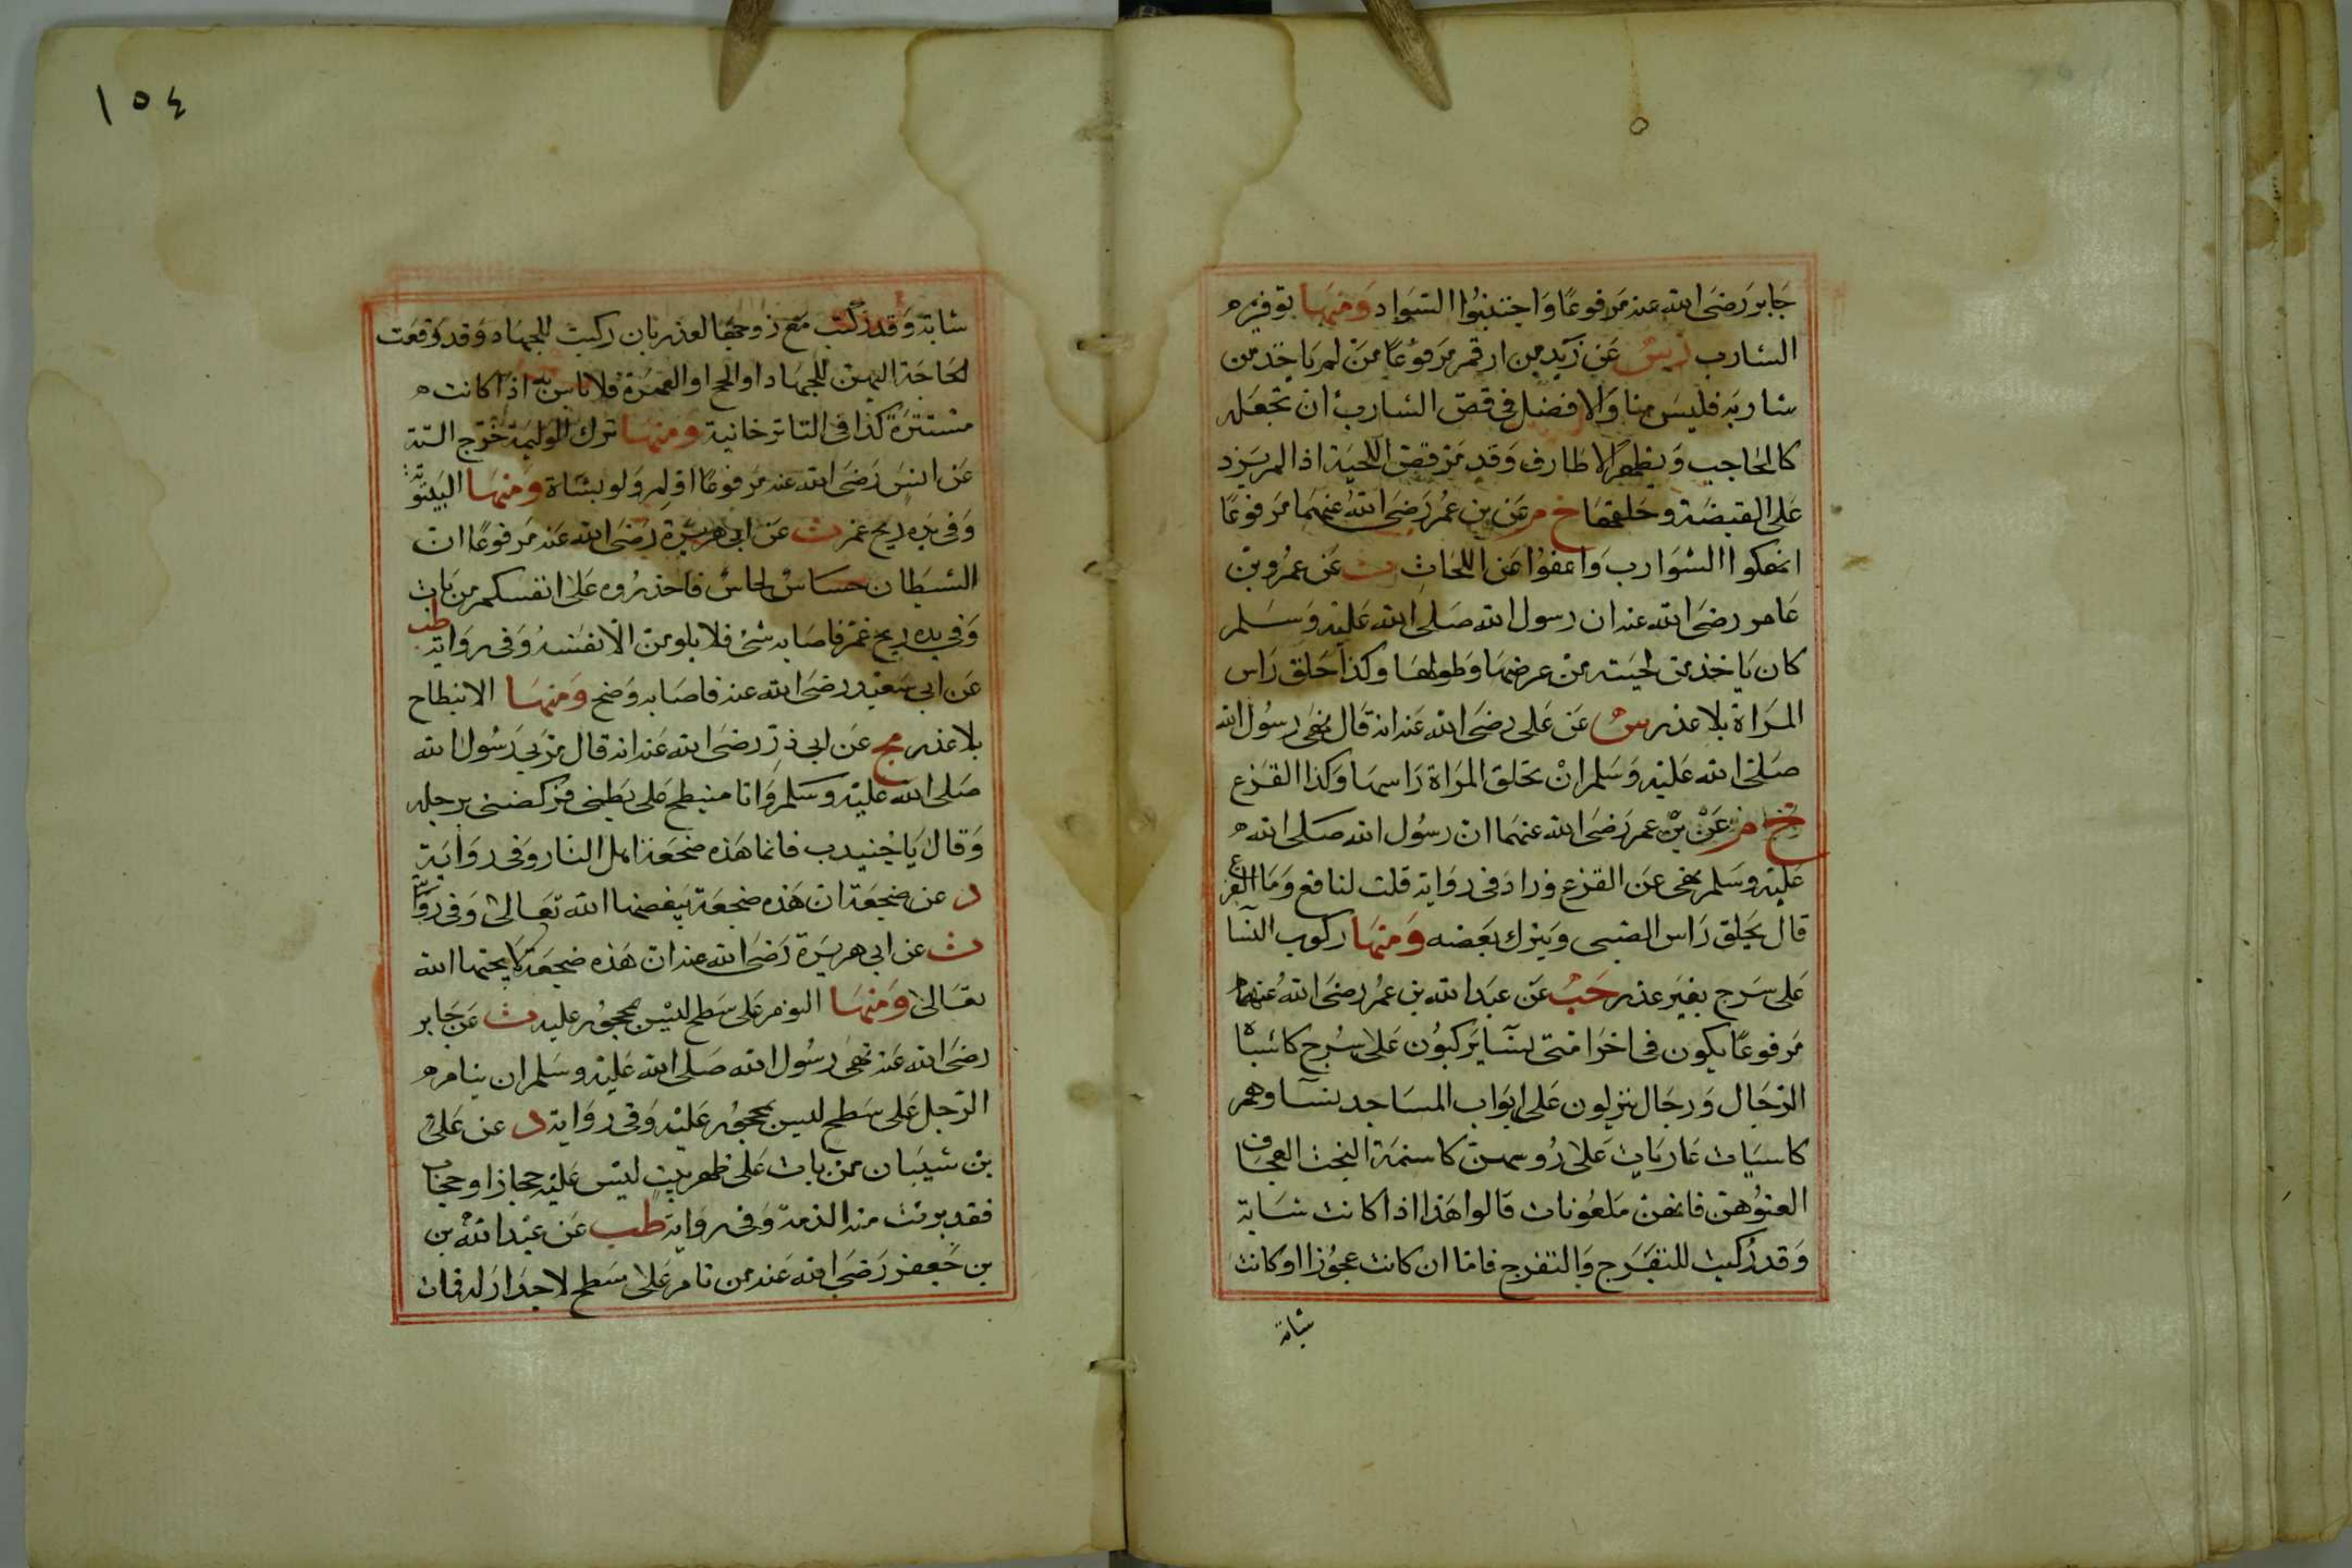 جابر رضى الله عنه مرفوعا واجتنبوا السواد ومنها توفيرم
الشارب ت س عن زيد بن ارقم مرفوعا من لم ياخذ من
شاربه فليس منا والافضل فى قص الشارب ان تجعله
كالحاجب ويظهر الاطار وقد مر قص اللحية اذا لم يزد
على القبضة وحلقها خ م عن بن عمر رضى الله عنهما مرفوعا
انهكوا الشوارب واعفوا عن اللحا ت عن عمرو بن
عامر رضى الله عنه ان رسول الله صلى الله عليه وسلم
كان ياخذ من لحيته من عرضها وطولها وكذا حلق راس
المراة بلا عذر س عن على رضى الله عنه انه قال نهى رسول الله
صلى الله عليه وسلم ان تحلق المراة راسها وكذا القزع
خ م عن بن عمر رضى الله عنهما ان رسول الله صلى الله
عليه وسلم نهى عن القزع وزاد فى رواية قلت لنافع وما القزع
قال يحلق راس الصبى ويترك بعضه ومنها ركوب النسا
على سرج بغير عذر حب عن عبد الله بن عمر رضى الله عنهما
مرفوعا يكون فى اخر امتى نسا يركبون على سرج كاشباه
الرجال ورجال ينزلون على ابواب المساجد نسآوهم
كاسيات عاريات على روسهن كاسنمة البخت العجاف
العنوهن فانهن ملعونات قالوا هذا اذا كانت شابة
وقد ركبت للتفرج والتفرج فاما ان كانت عجوزا او كانت
شابة
١٥٤
شابة وقد ركبت مع زوجها لعذر بان ركبت للجهاد وقد وقعت
الحاجة اليهن للجهاد او للحج او العمرة فلا باس به اذا كانت
مستترة كذا فى التاترخانية ومنها ترك الوليمة خرج الستة
عن انس رضى الله عنه مرفوعا اولم ولو بشاة ومنها البيتوتة
وفى يده ريح غمر ت عن ابى هريرة رضى الله عنه مرفوعا ان
الشيطان حساس لحاس فاحذروه على انفسكم من بات
وفى يده ريح غمر فاصابه شئ فلا يلومن الا نفسه وفى رواية طب
عن ابى سعيد رضى الله عنه فاصابه وضح ومنها الانبطاح
بلا عذر مج عن ابى ذر رضى الله عنه انه قال مر بى رسول الله
صلى الله عليه وسلم وانا منبطح على بطنى فركضنى برجله
وقال يا جنيدب فانما هذه ضجعة اهل النار وفى رواية
د عن ضجعة ان هذه ضجعة يبغضها الله تعالى وفى رواية
ت عن ابى هريرة رضى الله عنه ان هذه ضجعة لا يحبها الله
تعالى ومنها النوم على سطح ليس بمحجور عليه ت عن جابر
رضى الله عنه نهى رسول الله صلى الله عليه وسلم ان ينام
الرجل على سطح ليس بمحجور عليه وفى رواية د عن على
بن شيبان من بات على ظهر بيت ليس عليه حجاز او حجاب
فقد برئت منه الذمة وفى رواية طب عن عبد الله بن
بن جعفر رضى الله عنه من نام على سطح لا جدار له فمات